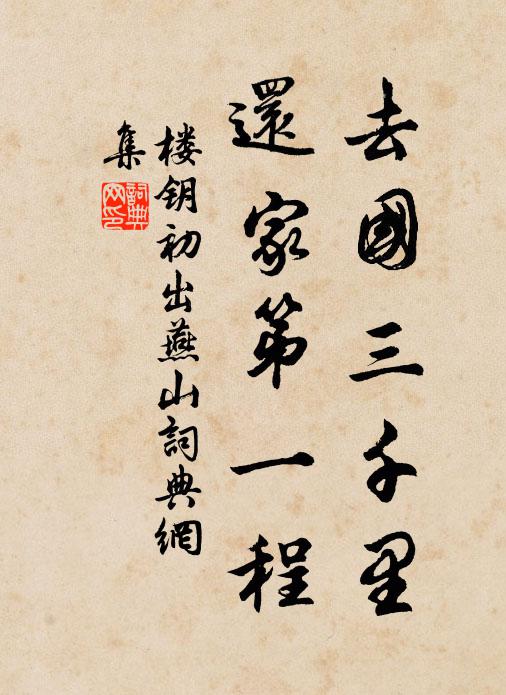 去國三千里
還家第一程
楼钥初出燕山詞典網
集
詞典网印